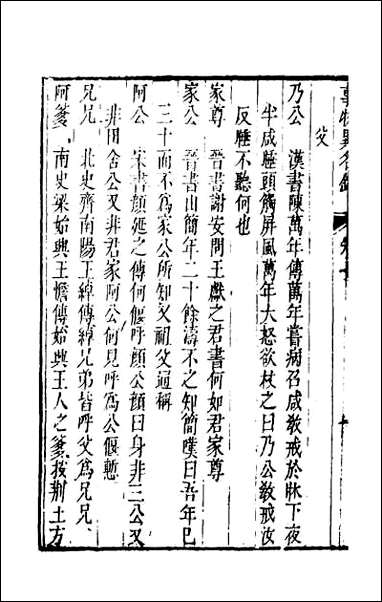 事物異名錄 卷
父
乃公　漢書陳萬年傳萬年嘗病召咸敎戒於牀下夜
半咸睡頭觸屏風萬年大怒欲杖之曰乃公敎戒汝
反睡不聽何也
家尊　晉書謝安問王獻之君書何如君家尊
家公　晉書山簡年二十餘濤不之知簡嘆曰吾年已
三十而不爲家公所知又祖父通稱
阿公　宋書顏延之傳何偃呼顏公顏曰身非三公又
非田舍公又非君家阿公何見呼爲公偃慙
兄兄　北史齊南陽王綽傳綽兄弟皆呼父爲兄兄
阿爹　南史梁始興王憺傳始興王人之爹按荆土方